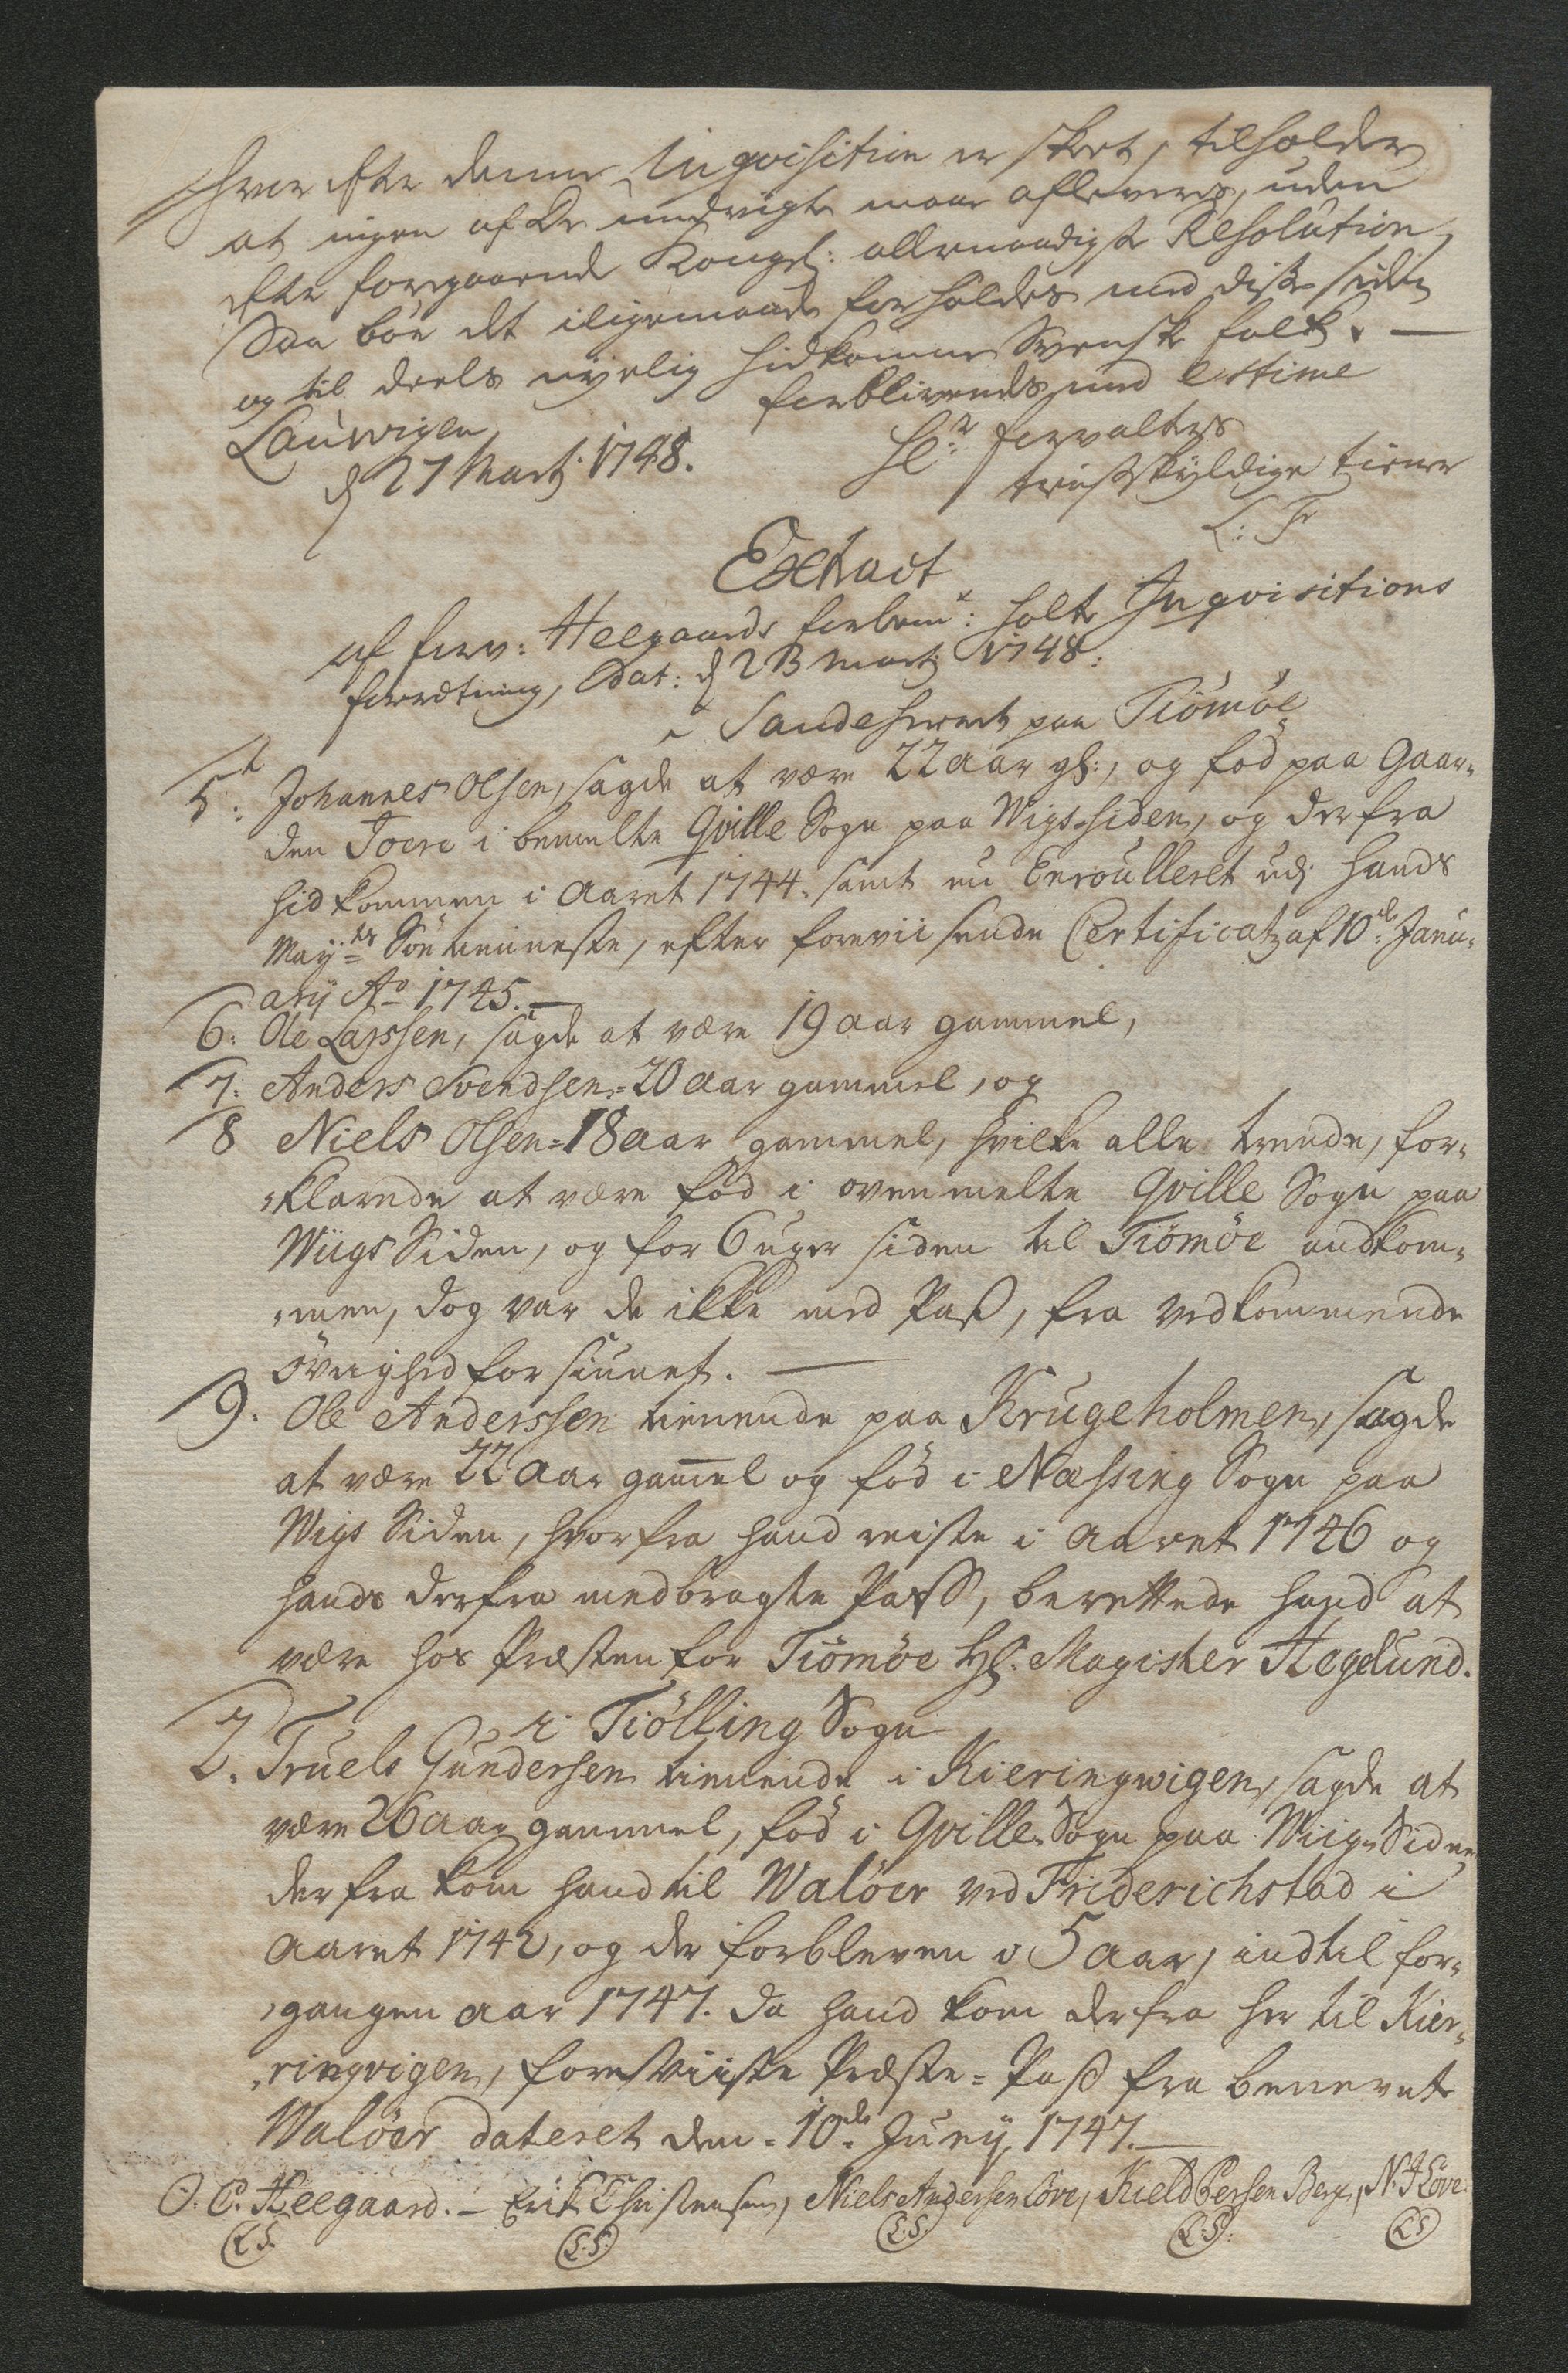 hvor efter denne Inqvisition er skeet, tilholder
at ingen af de undvigte maae afleveres, uden
efter foregaaende Kongel: allernaadigste Resolution,
Saa bör det iligemaade forholdes med disse siden
og til deels nyelig hidkomne Svenske folk. —
Laurvigen forblivende med estime
d 27 Martj 1748. Hl:r forvalters
tienstskyldige tiener
L: F
Extract
af forv: Heegaards forbem:te holte Inqvisitions
forretning, Dat: d 23 Martj 1748:
i Sandeherret paa Tiömöe
5te: Johannes Olsen, sagde at være 22 aar gl:, og fød paa Gaar-
den Toere i bemelte Qville Sogn paa Wigs-siden, og derfra
hidkommen i Aaret 1744. samt nu Enroulleret udj hands
May:ts Söe tienneste, efter foreviisende Certificatz af 10de: Janu-
arij Ao 1745. —
6: Ole Larssen, sagde at være 19 aar gammel,
7: Anders Svendsen = 20 aar gammel, og
8 Niels Olsen = 18 aar gammel, hvilke alle trende, for-
-klarede at være fød i ovenmelte Qville Sogn paa
Wiigs Siden, og for 6 uger siden til Tiömöe andkom-
-men, dog var de ikke med Pass, fra vedkommende
övrighed forsiunet. —
9. Ole Anderssen tienende paa Krugeholmen, sagde
at være 22 Aar gam̄el og fød i Næssing Sogn paa
Wigs Siden, hvorfra hand reiste i Aaret 1746 og
hands derfra medbragte Pass, berettede hand at
være hos Præsten for Tiömöe Hl: Magister Hegelund.
i Tiölling Sogn
2. Truels Gundersen tienende i Kieringvigen, sagde at
være 26 aar gammel, fød i Qville Sogn paa Wiigs Siden
derfra kom hand til Walöer ved Friderichstad i
Aaret 1742, og der forbleven i 5 aar, indtil for-
-gangen aar 1747. da hand kom derfra her til Kier-
-ringvigen, foreviiste Præste-Pass fra benevnte
Walöer dateret den 10de Junij 1747. —
O. C. Heegaard. — Erik Christensen, Niels Andersen Löve, Kield Persen Berg, N. H Löve.
L.S. L.S. L.S. L.S. L.S